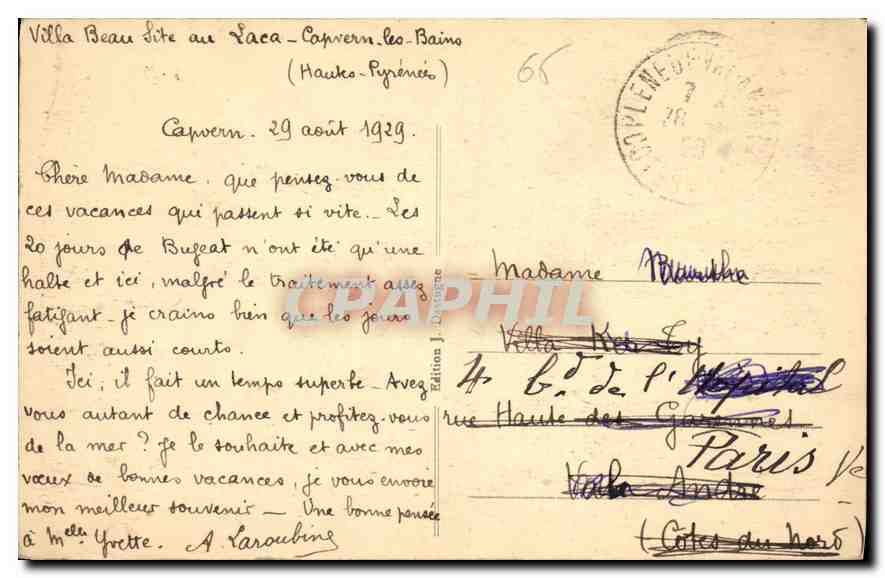 Villa Beau Site au Laca - Capvern-les-Bains
(Hautes-Pyrénées)
66
Capvern. 29 août 1929.
Chère Madame, que pensez-vous de
ces vacances qui passent si vite. - Les
20 jours de Bugeat n'ont été qu'une
halte et ici, malgré le traitement assez
fatigant - je crains bien que les jours
soient aussi courts.
Ici, il fait un temps superbe - Avez
vous autant de chance et profitez-vous
de la mer ? Je le souhaite et avec mes
vœux de bonnes vacances, je vous envoie
mon meilleur souvenir - Une bonne pensée
à Melle Yvette. A. Laroubine
Edition J. Dartugue
PLENEUF
Madame
Villa Ker
4 bd. de l'Hopital
rue Haute des Garennes
Paris Ve
Val André
(Côtes du Nord)
CPAPHIL